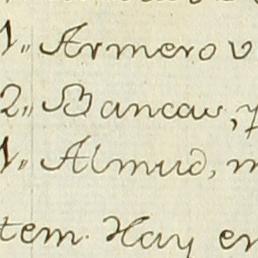 1,, Armero v
2,, Bancas, y
1,, Almud, m
tem. Hay en